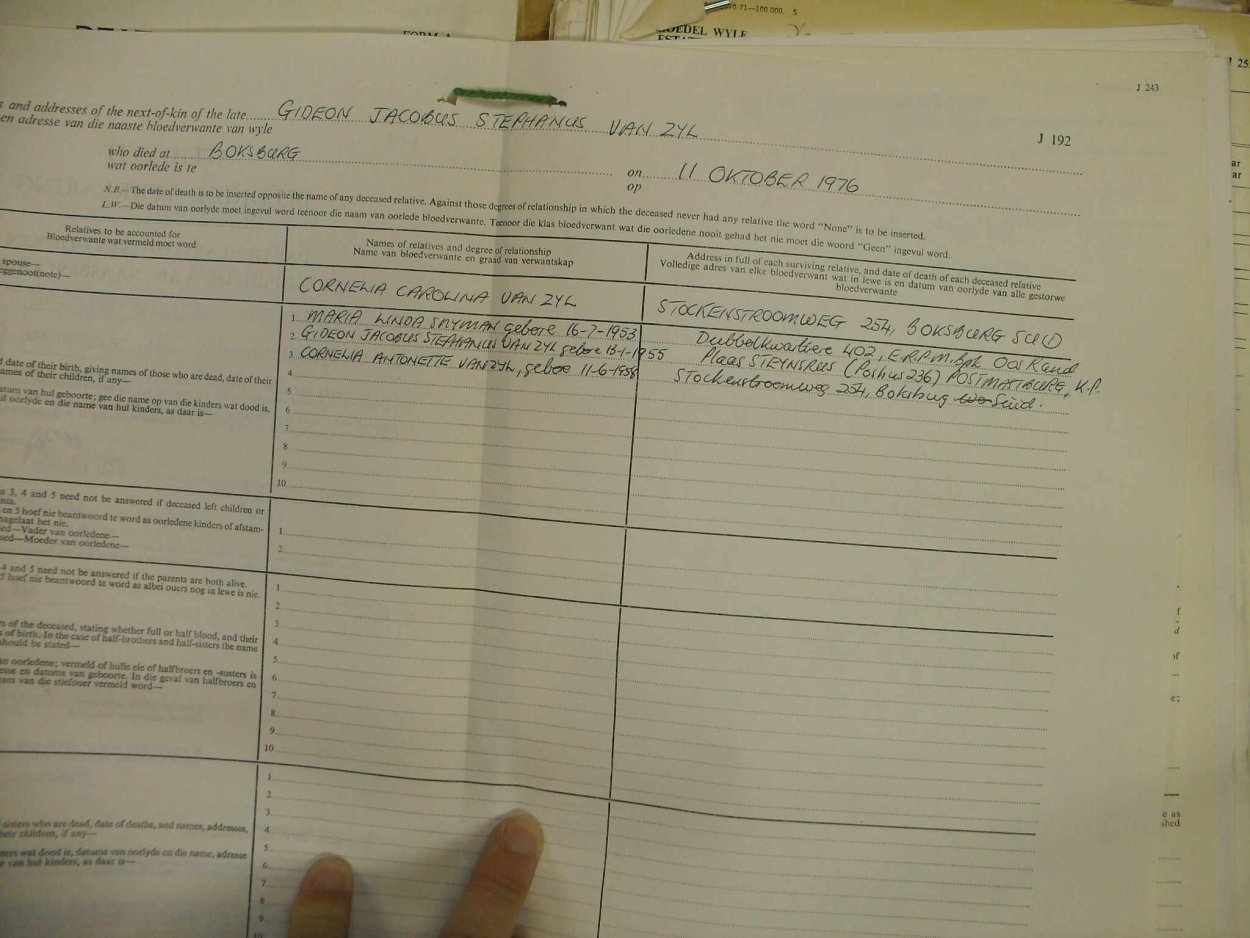 FORM A
30 71—100 000. S
BOEDEL WYLE
ESTATE
J 25
J 243
s and addresses of the next-of-kin of the late GIDEON JACOBUS STEPHANUS VAN ZYL
en adresse van die naaste bloedverwante van wyle
J 192
who died at BOKSBURG on 11 OKTOBER 1976
wat oorlede is te op
N.B.—The date of death is to be inserted opposite the name of any deceased relative. Against those degrees of relationship in which the deceased never had any relative the word "None" is to be inserted.
L.W.—Die datum van oorlyde moet ingevul word teenoor die naam van oorlede bloedverwante. Teenoor die klas bloedverwant wat die oorledene nooit gehad het nie moet die woord "Geen" ingevul word.
Relatives to be accounted for
Bloedverwante wat vermeld moet word
Names of relatives and degree of relationship
Name van bloedverwante en graad van verwantskap
Address in full of each surviving relative, and date of death of each deceased relative
Volledige adres van elke bloedverwant wat in lewe is en datum van oorlyde van alle gestorwe
bloedverwante
spouse—
eggenoot(note)—
CORNELIA CAROLINA VAN ZYL
STOCKENSTROOMWEG 254, BOKSBURG SUID
1 MARIA LINDA SNYMAN gebore 16-7-1953
Dubbelkwartiere 402, E.R.P.M. Bpk Oos Rand
2 GIDEON JACOBUS STEPHANUS VAN ZYL gebore 13-1-1955
Plaas STEYNSRUS (Posbus 236) POSTMASBURG, K.P.
3 CORNELIA ANTONETTE VAN ZYL, gebore 11-6-1958
Stockenstroomweg 254, Boksburg Suid.
d date of their birth, giving names of those who are dead, date of their
ames of their children, if any—
atum van hul geboorte; gee die name op van die kinders wat dood is,
ul oorlyde en die name van hul kinders, as daar is—
4
5
6
7
8
9
10
s 3, 4 and 5 need not be answered if deceased left children or
nts.
en 5 hoef nie beantwoord te word as oorledene kinders of afstam-
nagelaat het nie.
sed—Vader van oorledene—
sed—Moeder van oorledene—
1
2
4 and 5 need not be answered if the parents are both alive.
5 hoef nie beantwoord te word as albei ouers nog in lewe is nie.
s of the deceased, stating whether full or half blood, and their
s of birth. In the case of half-brothers and half-sisters the name
should be stated—
an oorledene; vermeld of hulle eie of halfbroers en -susters is
esse en datums van geboorte. In die geval van halfbroers en
am van die stiefouer vermeld word—
1
2
3
4
5
6
7
8
9
10
sisters who are dead, date of deaths, and names, addresses,
heir children, if any—
sters wat dood is, datums van oorlyde en die name, adresse
e van hul kinders, as daar is—
1
2
3
4
5
6
7
8
9
10